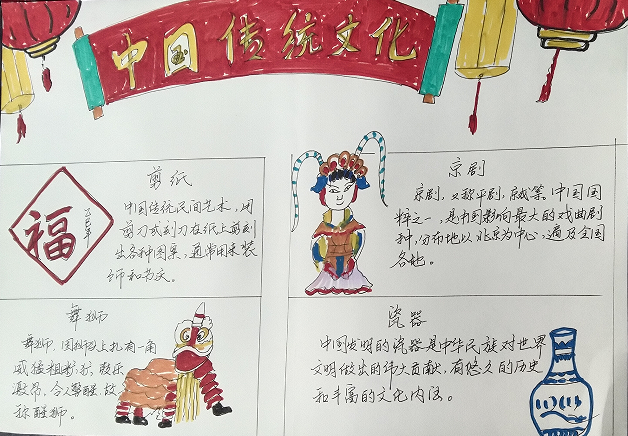 中国传统文化
剪纸
福
中国传统民间艺术，用
剪刀或刻刀在纸上剪刻
出各种图案，通常用来装
饰和节庆。
京剧
京剧，又称平剧，京戏等，中国国
粹之一，是中国影响最大的戏曲剧
种，分布地以北京为中心，遍及全国
各地。
舞狮
舞狮，因狮头上扎有一角
威猛粗犷，鼓乐
激昂，令人警醒，故
称醒狮。
瓷器
中国发明的瓷器是中华民族对世界
文明做出的伟大贡献，有悠久的历史
和丰富的文化内涵。